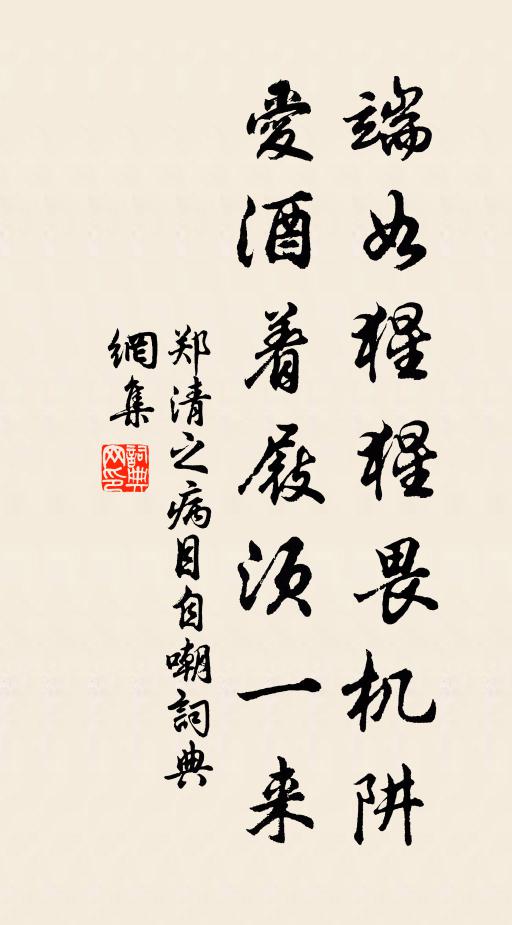 端如猩猩畏机阱
愛酒着屐須一来
郑清之病目自嘲詞典
網集
詞典网印